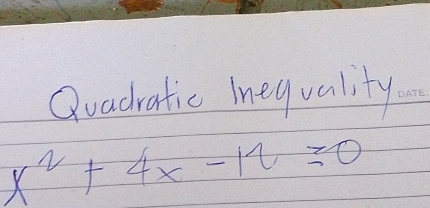 Quadratic Inequality
DATE:
x² + 4x - 12 ≥ 0